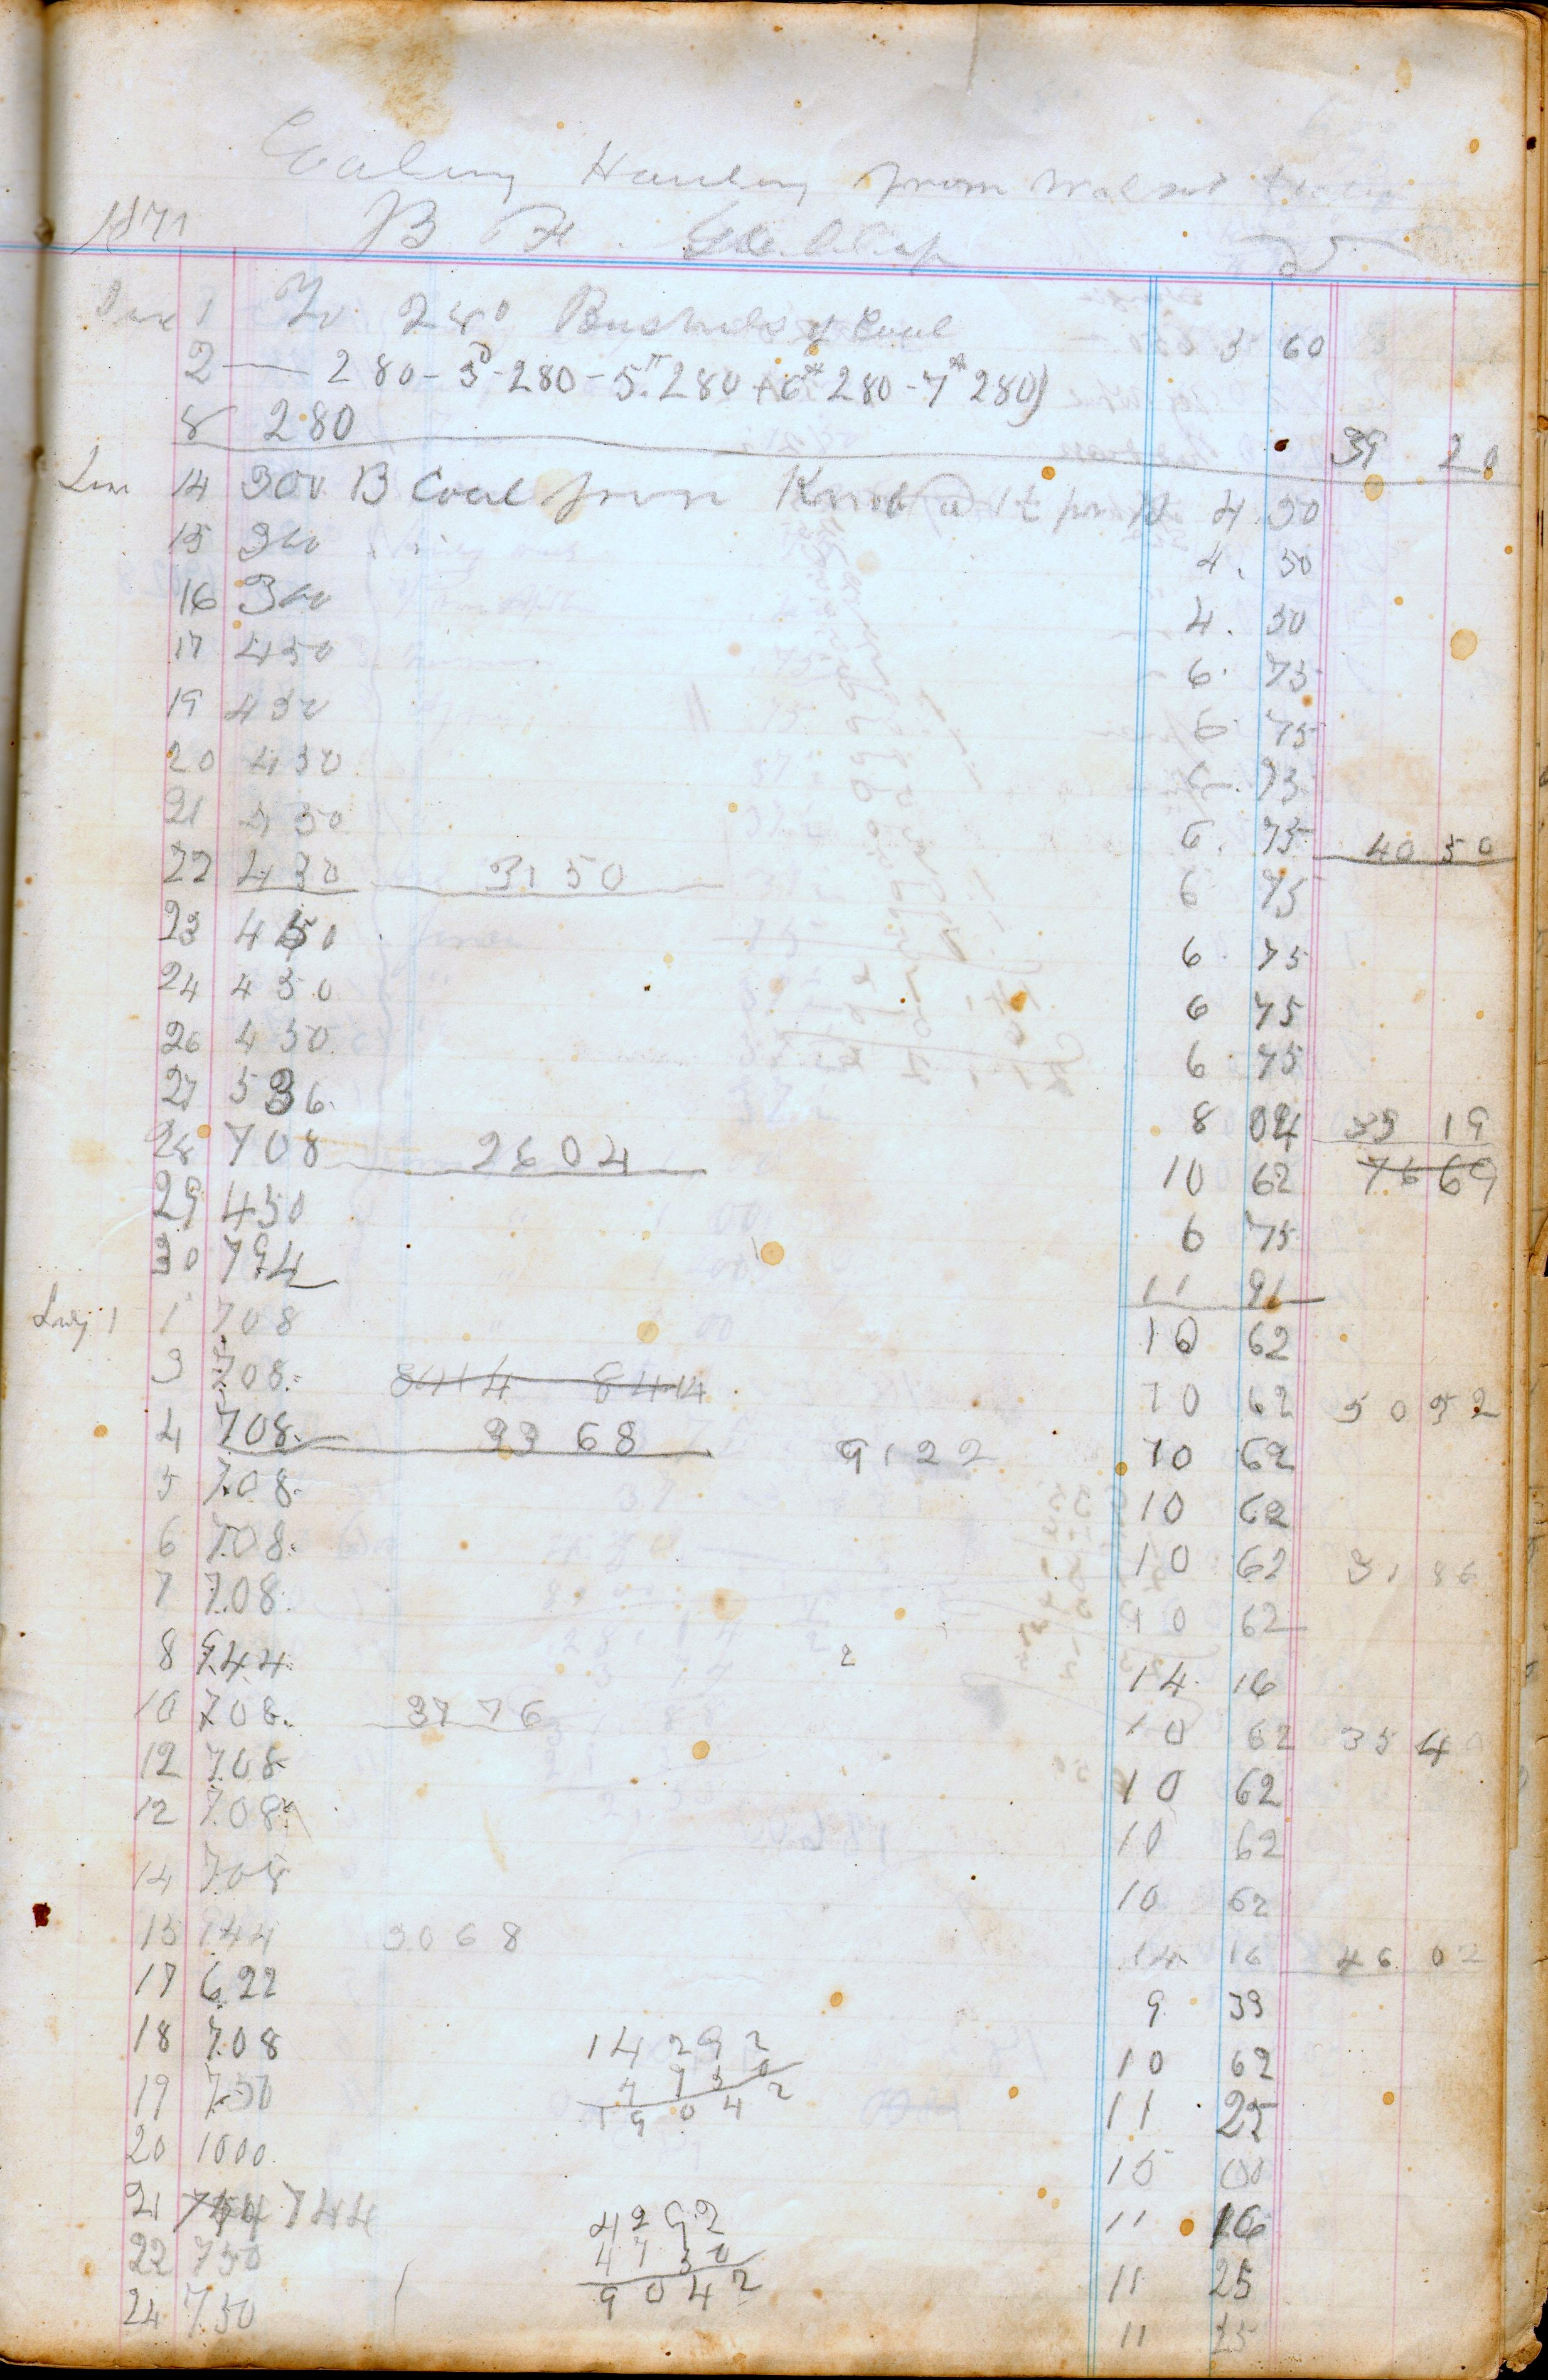 Coaling Hauling from
1871 B F.
1 To 280 Bushels of Coal 3 60
2 — 280 - 3 - 280 - 5 " 280 + 6 " 280 - 7 " 280)
8 280 39 20
14 300 B Coal from Knob @ 4 50
15 300 4. 50
16 300 4. 50
17 450 6. 75
19 450 6 75
20 450 6. 75
21 450 6. 75 40 50
22 450 3150 6 75
23 450 6 75
24 450 6 75
26 450 6 75
27 536 8 04 39 19
28 708 2604 10 62 76 69
29 450 6 75
30 794 11 91
1 708 10 62
3 708 8414 8414 10 62 50 52
4 708 3368 9122 10 62
5 708 10 62
6 708 10 62 31 86
7 708 10 62
8 944 2 14 16
10 708 3776 10 62 35 40
12 708 10 62
12 708 10 62
14 708 10 62
15 944 3068 14 16 46 02
17 622 9 33
18 708 14292 10 62
19 750 4750 11 25
19042
20 1000 15 00
21 744 744 4292 11 16
22 750 4750 11 25
24 750 9042 11 25